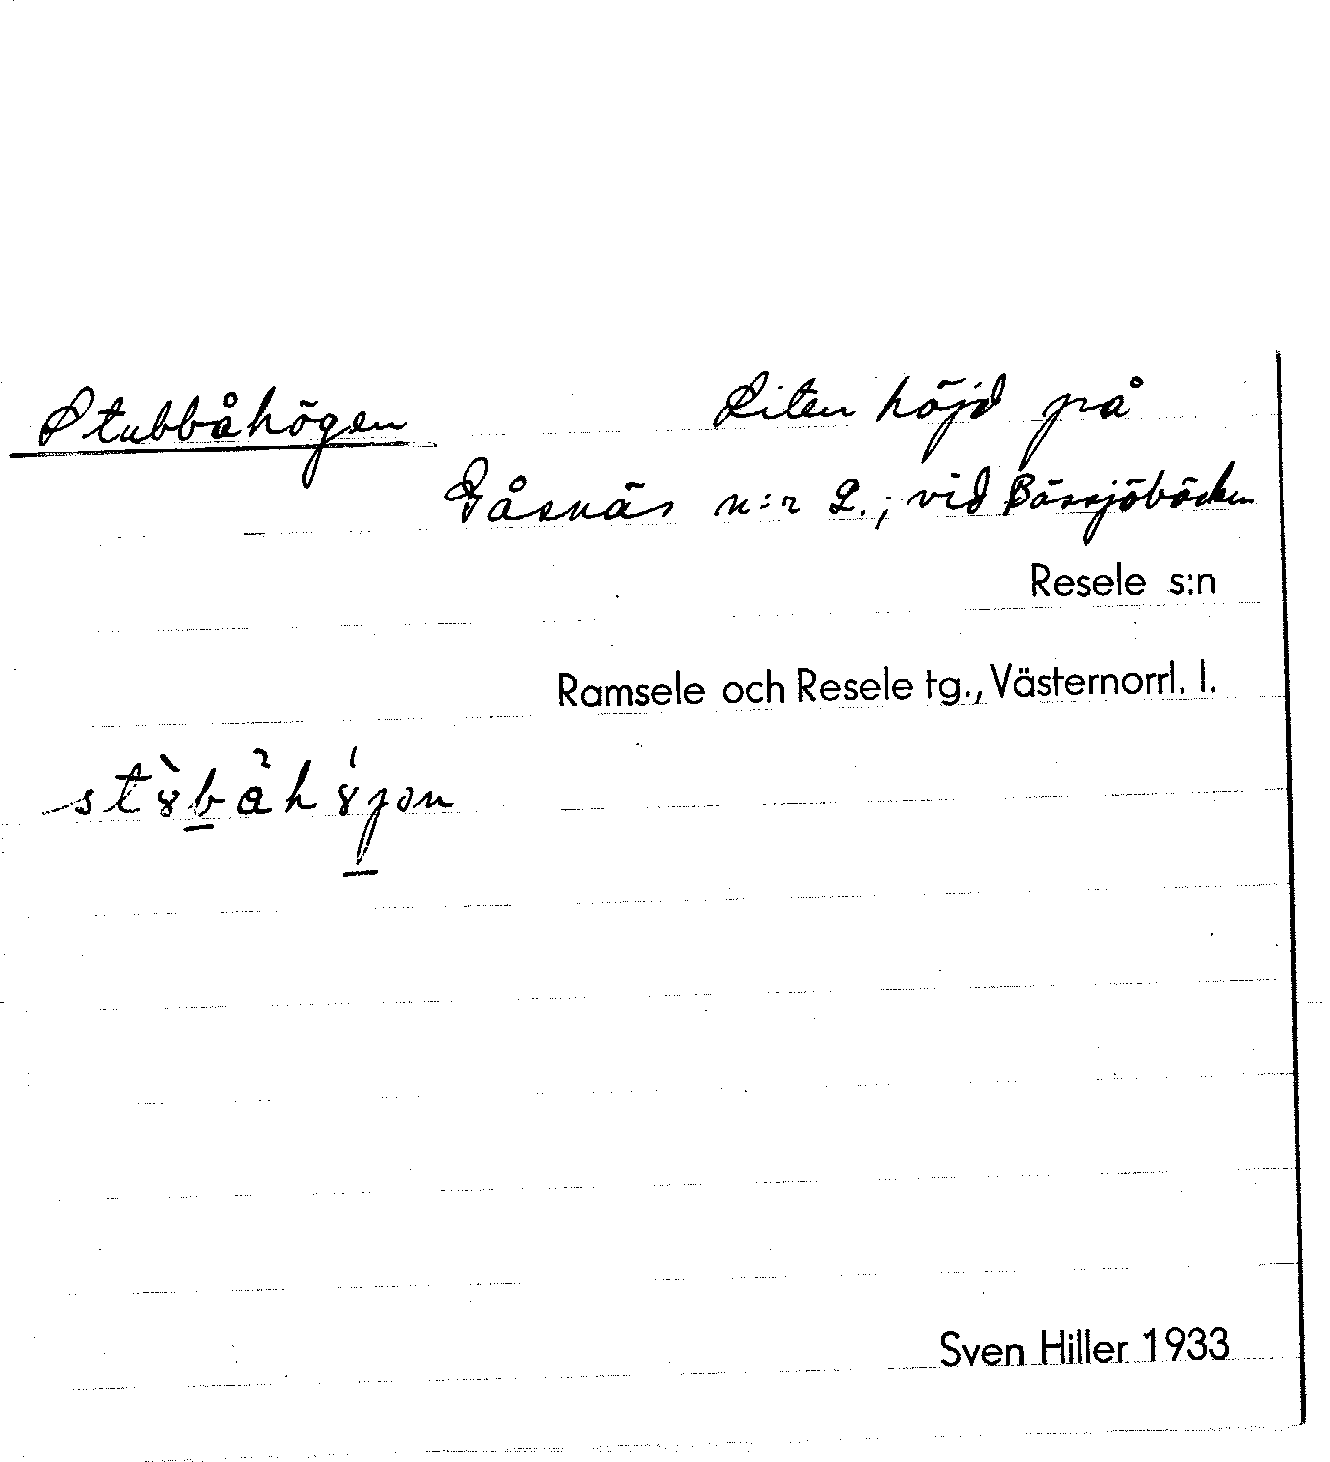 Stubbåhögen Liten höjd på
Gåsnäs n:r 2., vid Bössjöbäcken
Resele s:n
Ramsele och Resele tg., Västernorrl. l.
Sven Hiller 1933